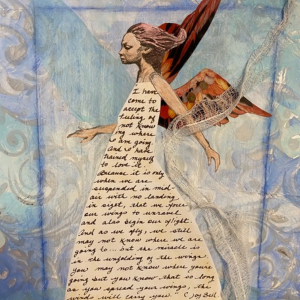 I have
come to
accept the
feeling of
not know
ing where
I am going.
and so have
trained myself
to love it
Because it is only
when we are
suspended in mid-
air with no landing
in sight, that we force
our wings to unravel
and also begin our flight.
And as we fly, we still
may not know where we are
going to... but the miracle is
in the unfolding of the wings.
You may not know where you're
going but you know that so long
as you spread your wings, the
winds will carry you. C. Joy Bell